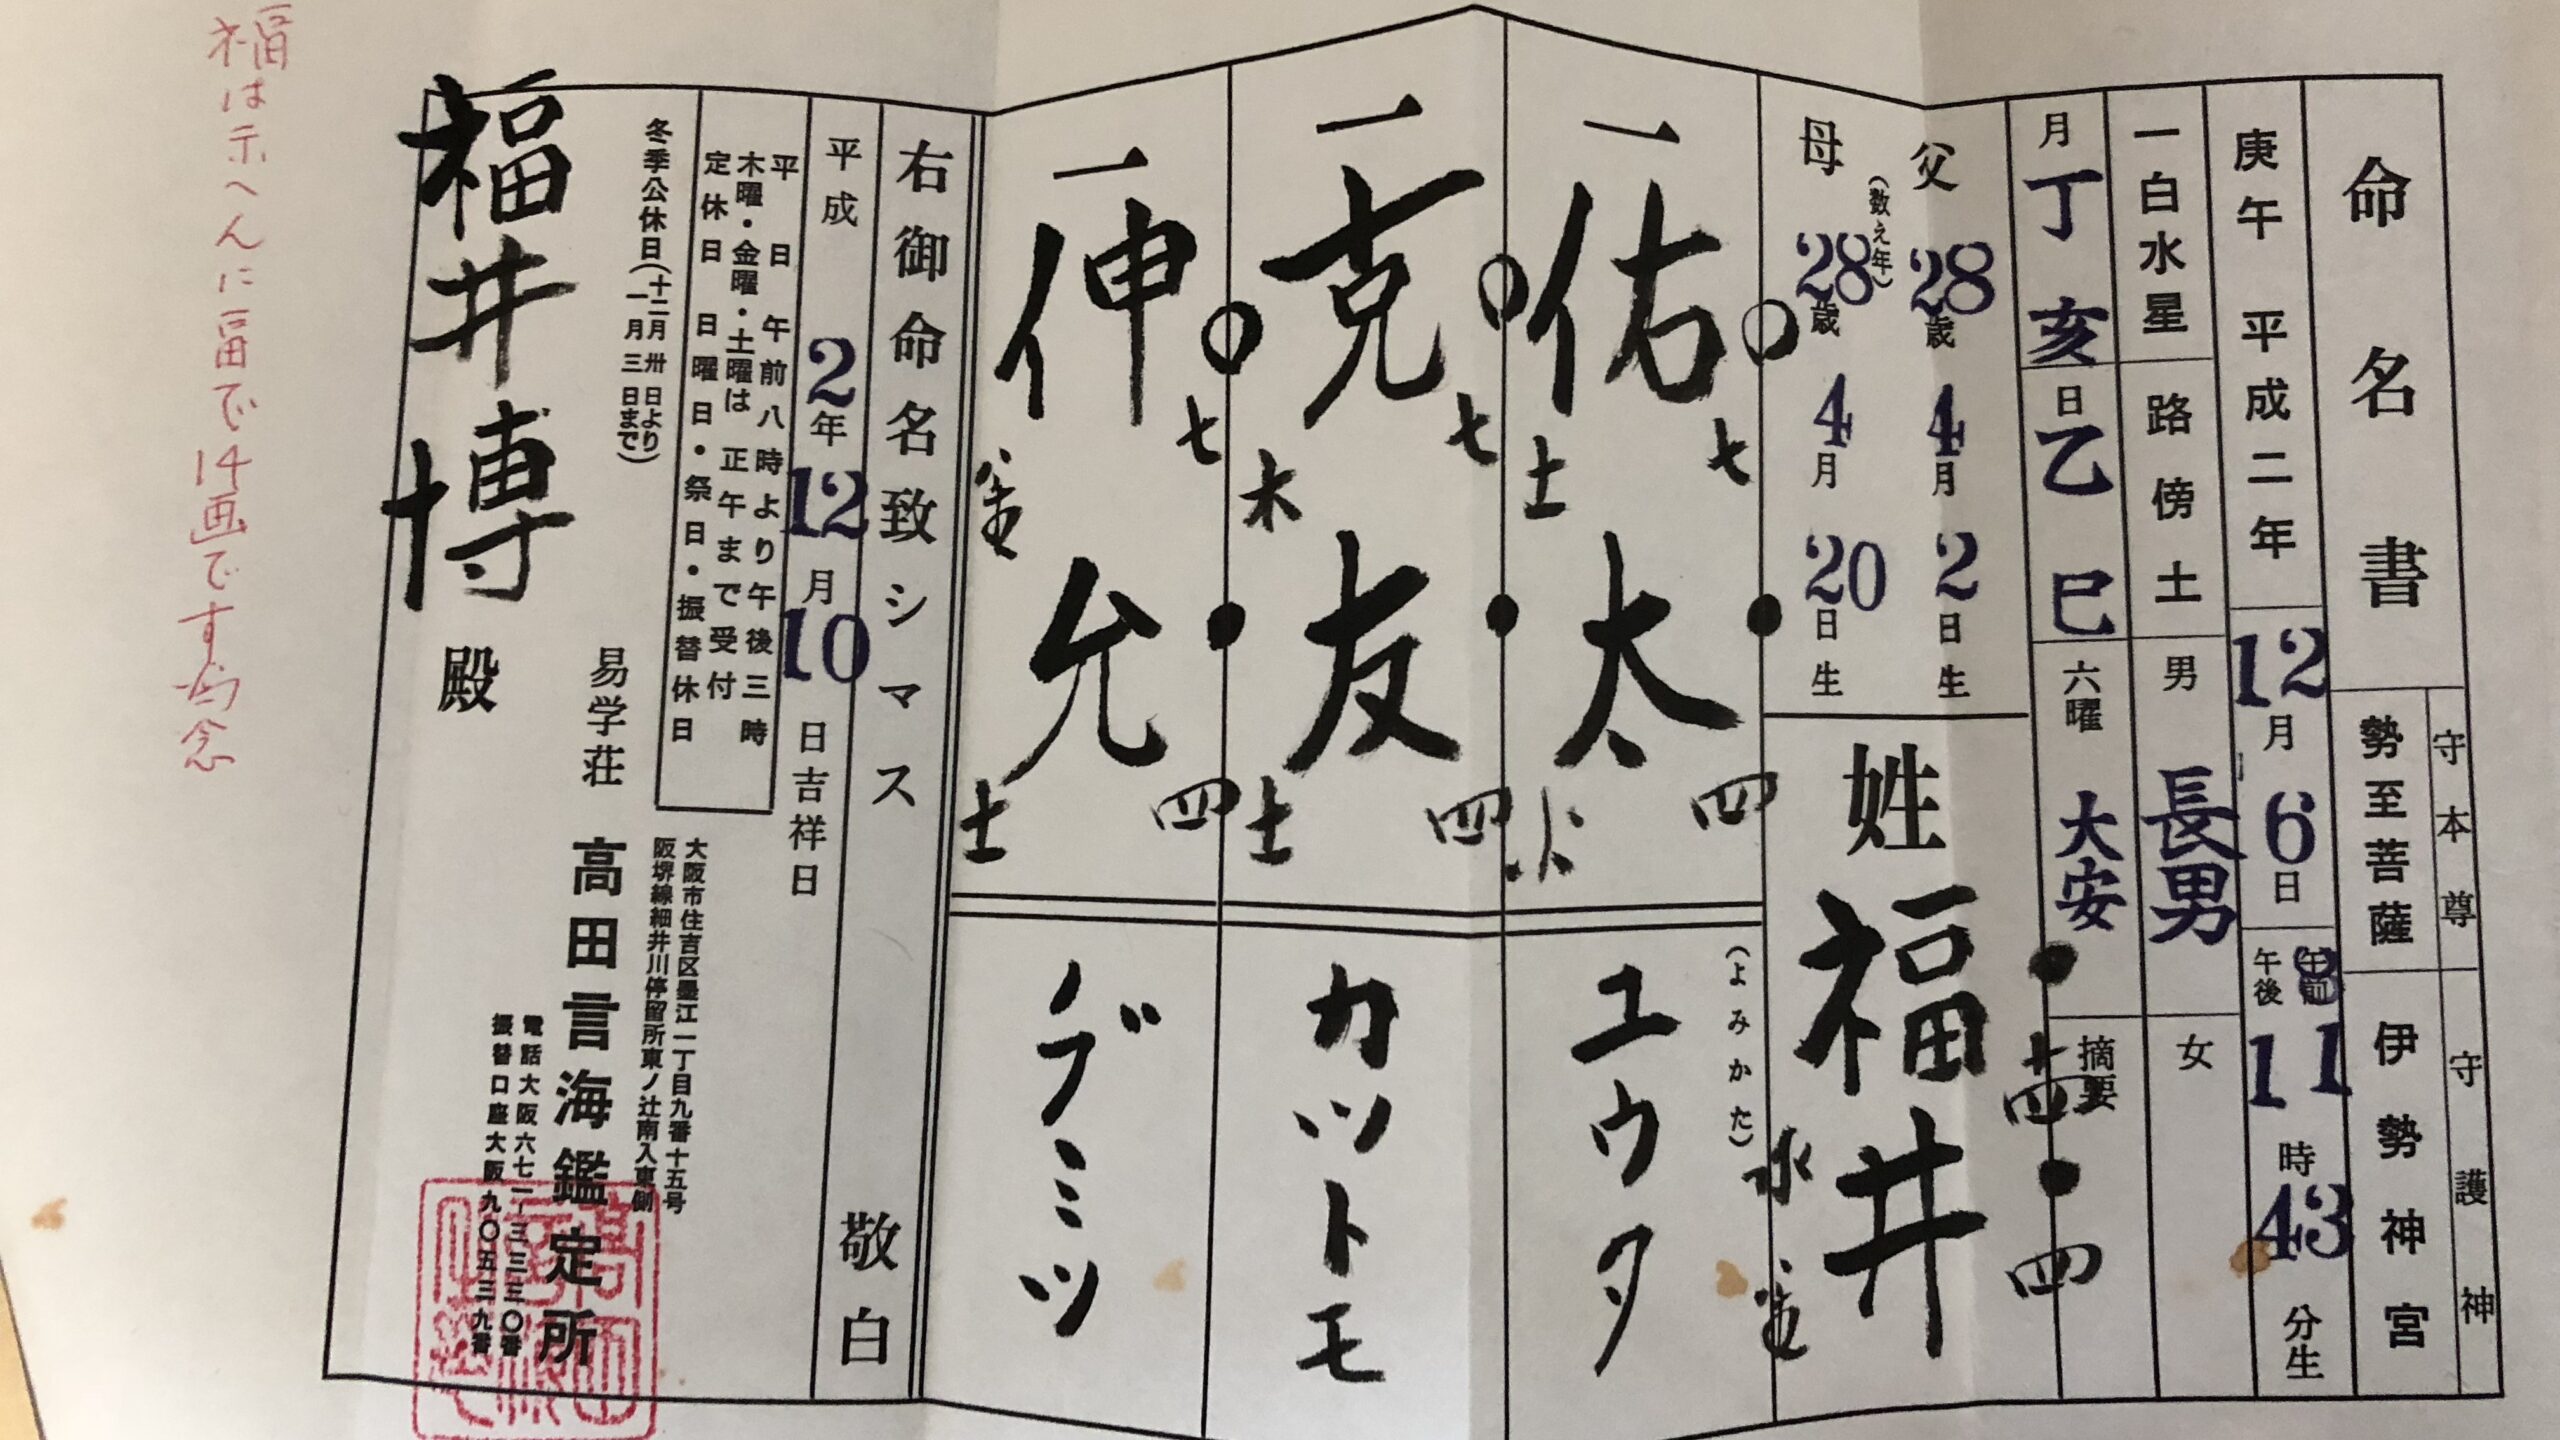 命名書
守本尊
勢至菩薩
守護神
伊勢神宮
庚午 平成二年 12月6日 午前 午後 11 11時43分生
一白水星 路傍土 男 長男 女
月 丁亥 日 乙巳 六曜 大安 摘要
父 28歳 4月2日生
(数え年)
母 28歳 4月20日生
姓 福井
十四 四
水 金
一佑太
七 四
土 火
(よみかた)
ユウタ
一克友
七 四
木 土
カツトモ
一伸允
七 四
金 土
ノブミツ
右御命名致シマス 敬白
平成2年12月10日吉祥日
平日 午前八時より午後三時
木曜・金曜・土曜は 正午まで受付
定休日 日曜日・祭日・振替休日
冬季公休日(十二月卅日より一月三日まで)
大阪市住吉区墨江一丁目九番十五号
阪堺線細井川停留所東ノ辻南入東側
易学荘 高田言海鑑定所
電話大阪六七一-三三三〇番
振替口座大阪九〇五三九番
福井博殿
福は示へんに畐で14画です 為念